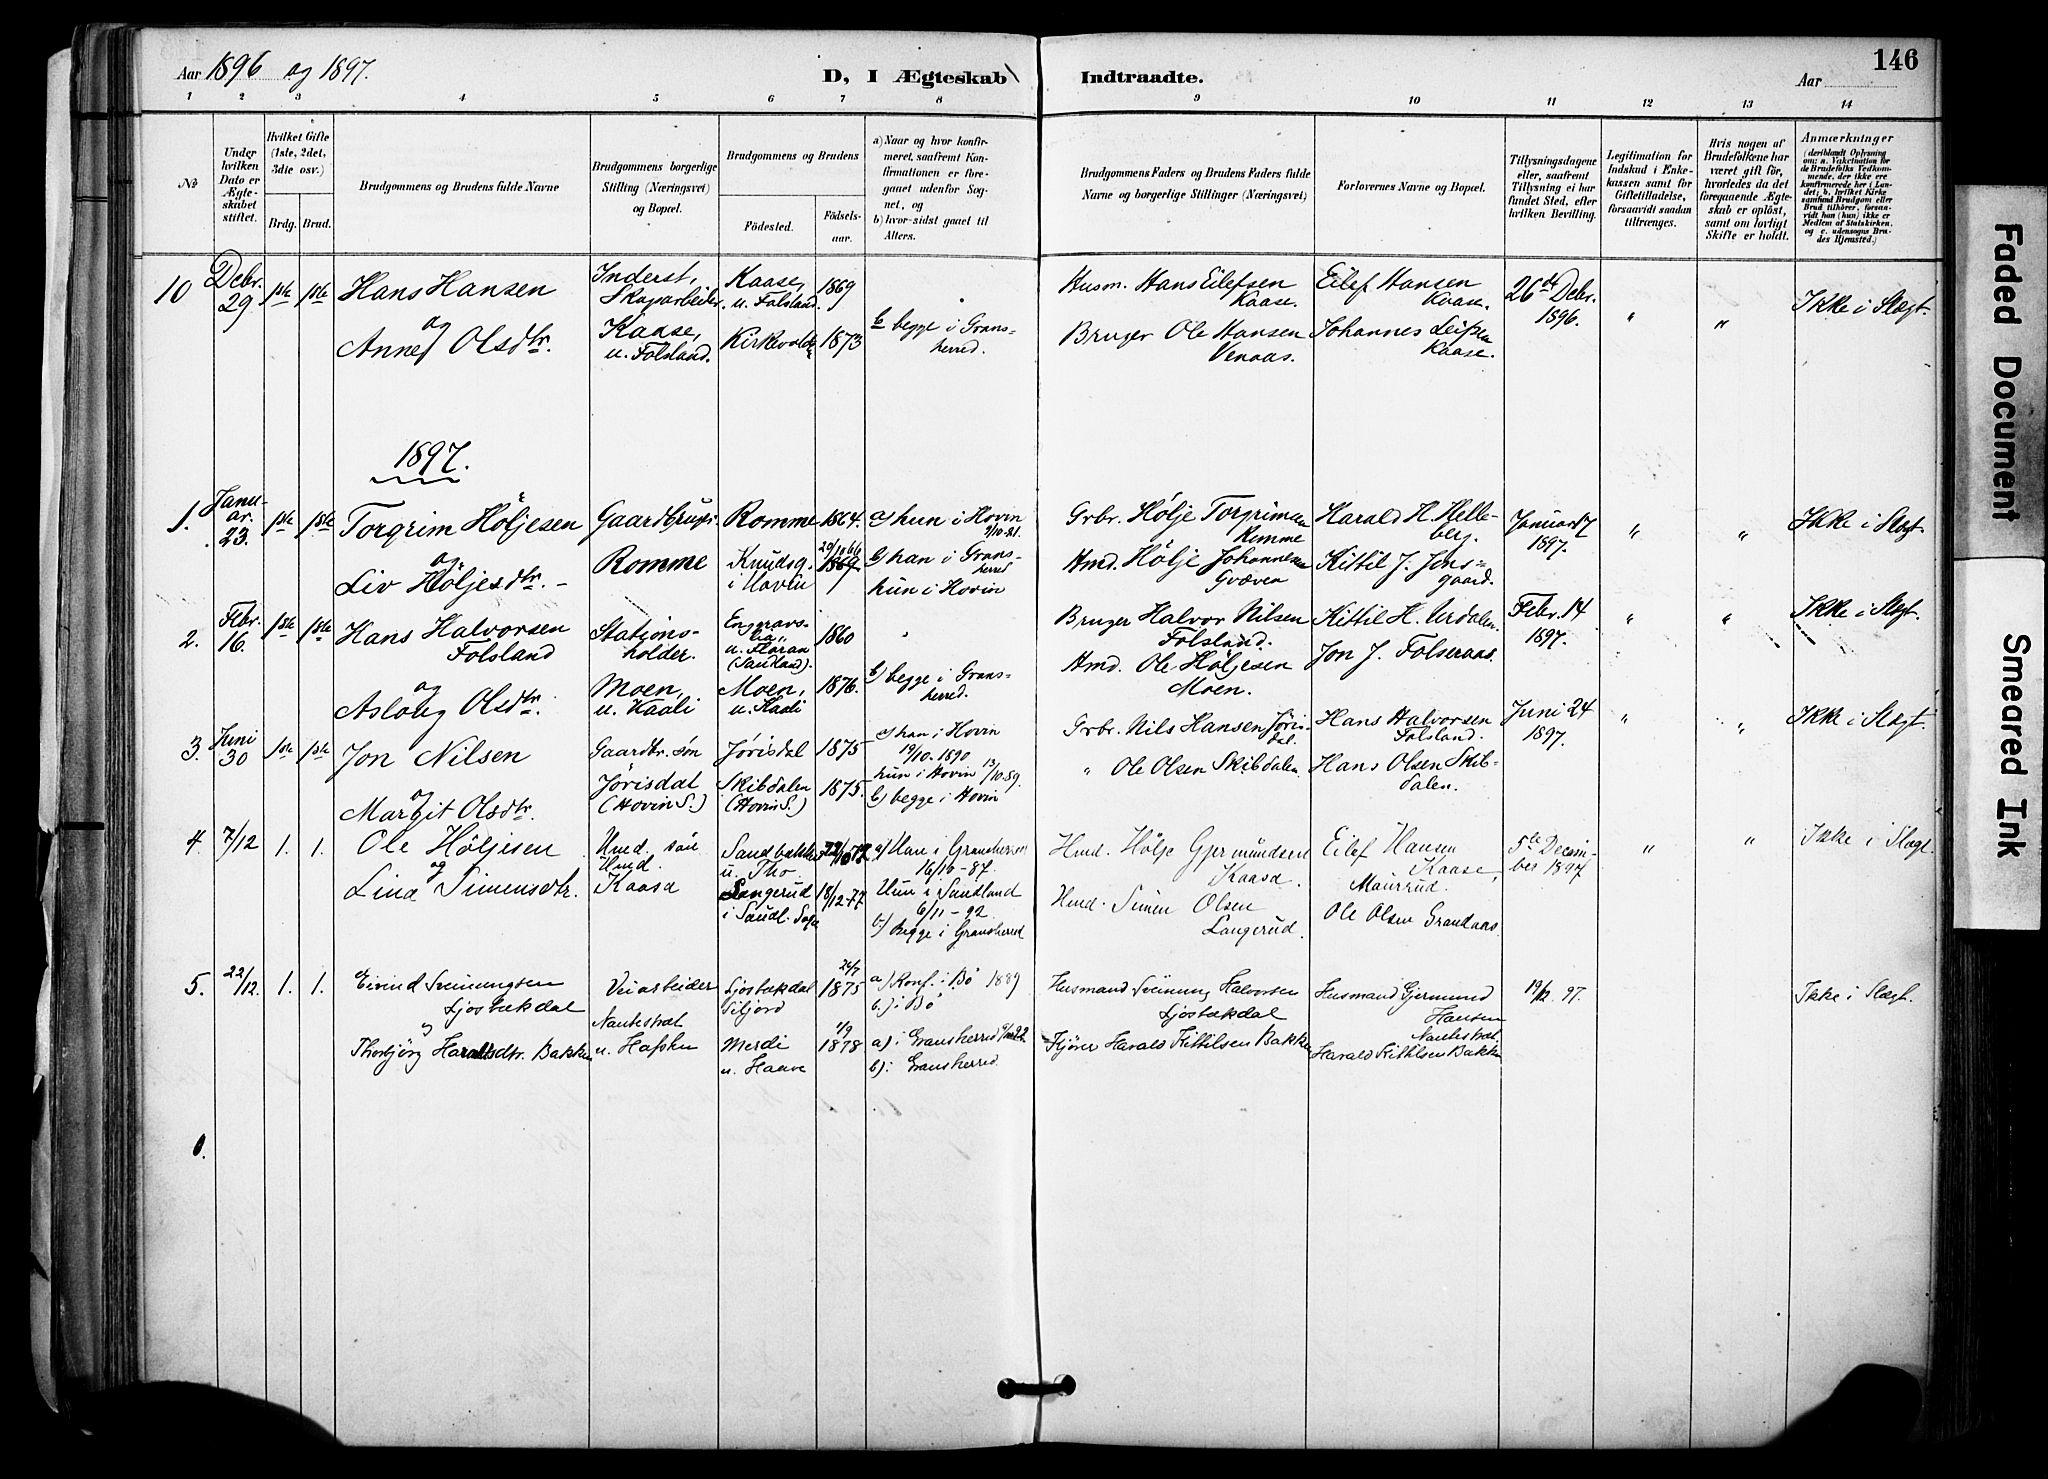 Aar 1896 og 1897.
D, I Ægteskab
Indtraadte.
Aar
146
1 2 3 4 5 6 7 8 9 10 11 12 13 14
No
Under hvilken Dato er Ægteskabet stiftet.
Hvilket Gifte (1ste, 2det, 3die osv.)
Brdg. Brud.
Brudgommens og Brudens fulde Navne
Brudgommens borgerlige Stilling (Næringsvei) og Bopæl.
Brudgommens og Brudens
Födested.
Födselsaar.
a) Naar og hvor konfirmeret, saafremt Konfirmationen er foregaaet udenfor Sognet, og
b) hvor sidst gaaet til Alters.
Brudgommens Faders og Brudens Faders fulde Navne og borgerlige Stillinger (Næringsvei)
Forlovernes Navne og Bopæl.
Tillysningsdagene eller, saafremt Tillysning ei har fundet Sted, efter hvilken Bevilling.
Legitimation for Indskud i Enkekassen samt for Giftetilladelse, forsaavidt saadan tiltrænges.
Hvis nogen af Brudefolkene har været gift för, hvorledes da det foregaaende Ægteskab er oplöst, samt om lovligt Skifte er holdt.
Anmærkninger (deriblandt Oplysning om: a. Vakcination for de Brudefolks Vedkommende, der ikke ere konfirmerede her i Landet; b. hvilket Kirkesamfund Brudgom eller Brud tilhörer, forsaavidt han (hun) ikke er Medlem af Statskirken, og c. udensogns Brudes Hjemsted.)
10 Debr. 29 1ste 1ste Hans Hansen
og
Anne Olsdtr.
Inderst,
Kaase,
u. Folsland.
Kaase,
u. Folsland. 1869
1873
b begge i Gransherred.
Husm. Hans Eilefsen
Kaase.
Bruger Ole Hansen
Venaas.
Eilef Hansen
Kaase.
Johannes
Kaase.
26de Debr.
1896.
" "
Ikke i Slægt.
1897.
1. Januar. 23. 1ste 1ste Torgrim Höljesen
og
Liv Höljesdtr. -
Gaardbruger
Romme
Romme 1864.
Knudsg.
i Hovin
29/10 66
1869
a) hun i Hovin
9/10-81.
b) han i Gransherred
hun i Hovin
Grbr. Hölje Torgrimsen
Romme
Hmd. Hölje Johannesen
Gvæven
Harald H. Helleberg.
Kittil J. Jonsgaard.
Januar 17
1897.
" "
Ikke i Slægt.
2. Febr. 16. 1ste 1ste Hans Halvorsen
Folsland
og
Aslaug Olsdtr.
Stationsholder.
Moen,
u. Kaali
u. Floran
(Sauland). 1860
Moen,
u. Kaali 1876.
"
b) begge i Gransherred.
Bruger Halvor Nilsen
Folsland.
Hmd. Ole Höljesen
Moen.
Kittil H. Urdalen.
Jon J. Folseraas.
Febr. 14
1897.
" "
Ikke i Slægt.
3. Juni 30 1ste 1ste Jon Nilsen
og
Margit Olsdtr.
Gaardbr. sön
Jörisdal
(Hovin S.)
Jörisdal 1875
Skibdalen
(Hovin S.) 1875.
a) han i Hovin
19/10. 1890
hun i Hovin 13/10.89.
b) begge i Hovin
Grbr. Nils Hansen Jörisdal.
" Ole Olsen Skibdalen
Hans Halvorsen
Folsland.
Hans Olsen Skibdalen.
Juni 24
1897.
" "
Ikke i Slægt.
4. 7/12 1. 1. Ole Höljesen
og
Lina Simensdtr.
Hmd. sön
Hmd.
Kaasa
Sandbakken
u. Tho
Langerud
i Saudl. Sogn
18/12-77
a) Han i Gransherred
16/10-87.
Hun i Saudland
6/11-92
b) Begge i Gransherred
Hmd. Hölje Gjermundsen
Kaasa.
Hmd. Simen Olsen
Langerud.
Eilef Hansen
Kaase,
Maurrud.
Ole Olsen Grandaas.
5te December 1897
" "
Ikke i Slægt.
5. 22/12. 1. 1. Eivind Sveinungsen
Ljosbækdal
og
Thorbjörg Haraldsdtr. Bakken
Veiarbeider
Ljosbækdal
Siljord
26/7
1875
Merdi
u. Haave
1/9
1878
a.) Konf. i Bö 1889
b.) i Bö
a) i Gransherred
b) i Gransherred
Husmand Sveinung Halvorsen
Ljosbækdal
Kjörer Harald Kittilsen Bakken
Husmand Gjermund
Hansen
Harald Kittilsen Bakken
19/12 97.
Ikke i Slægt.
Faded Document
Smeared Ink